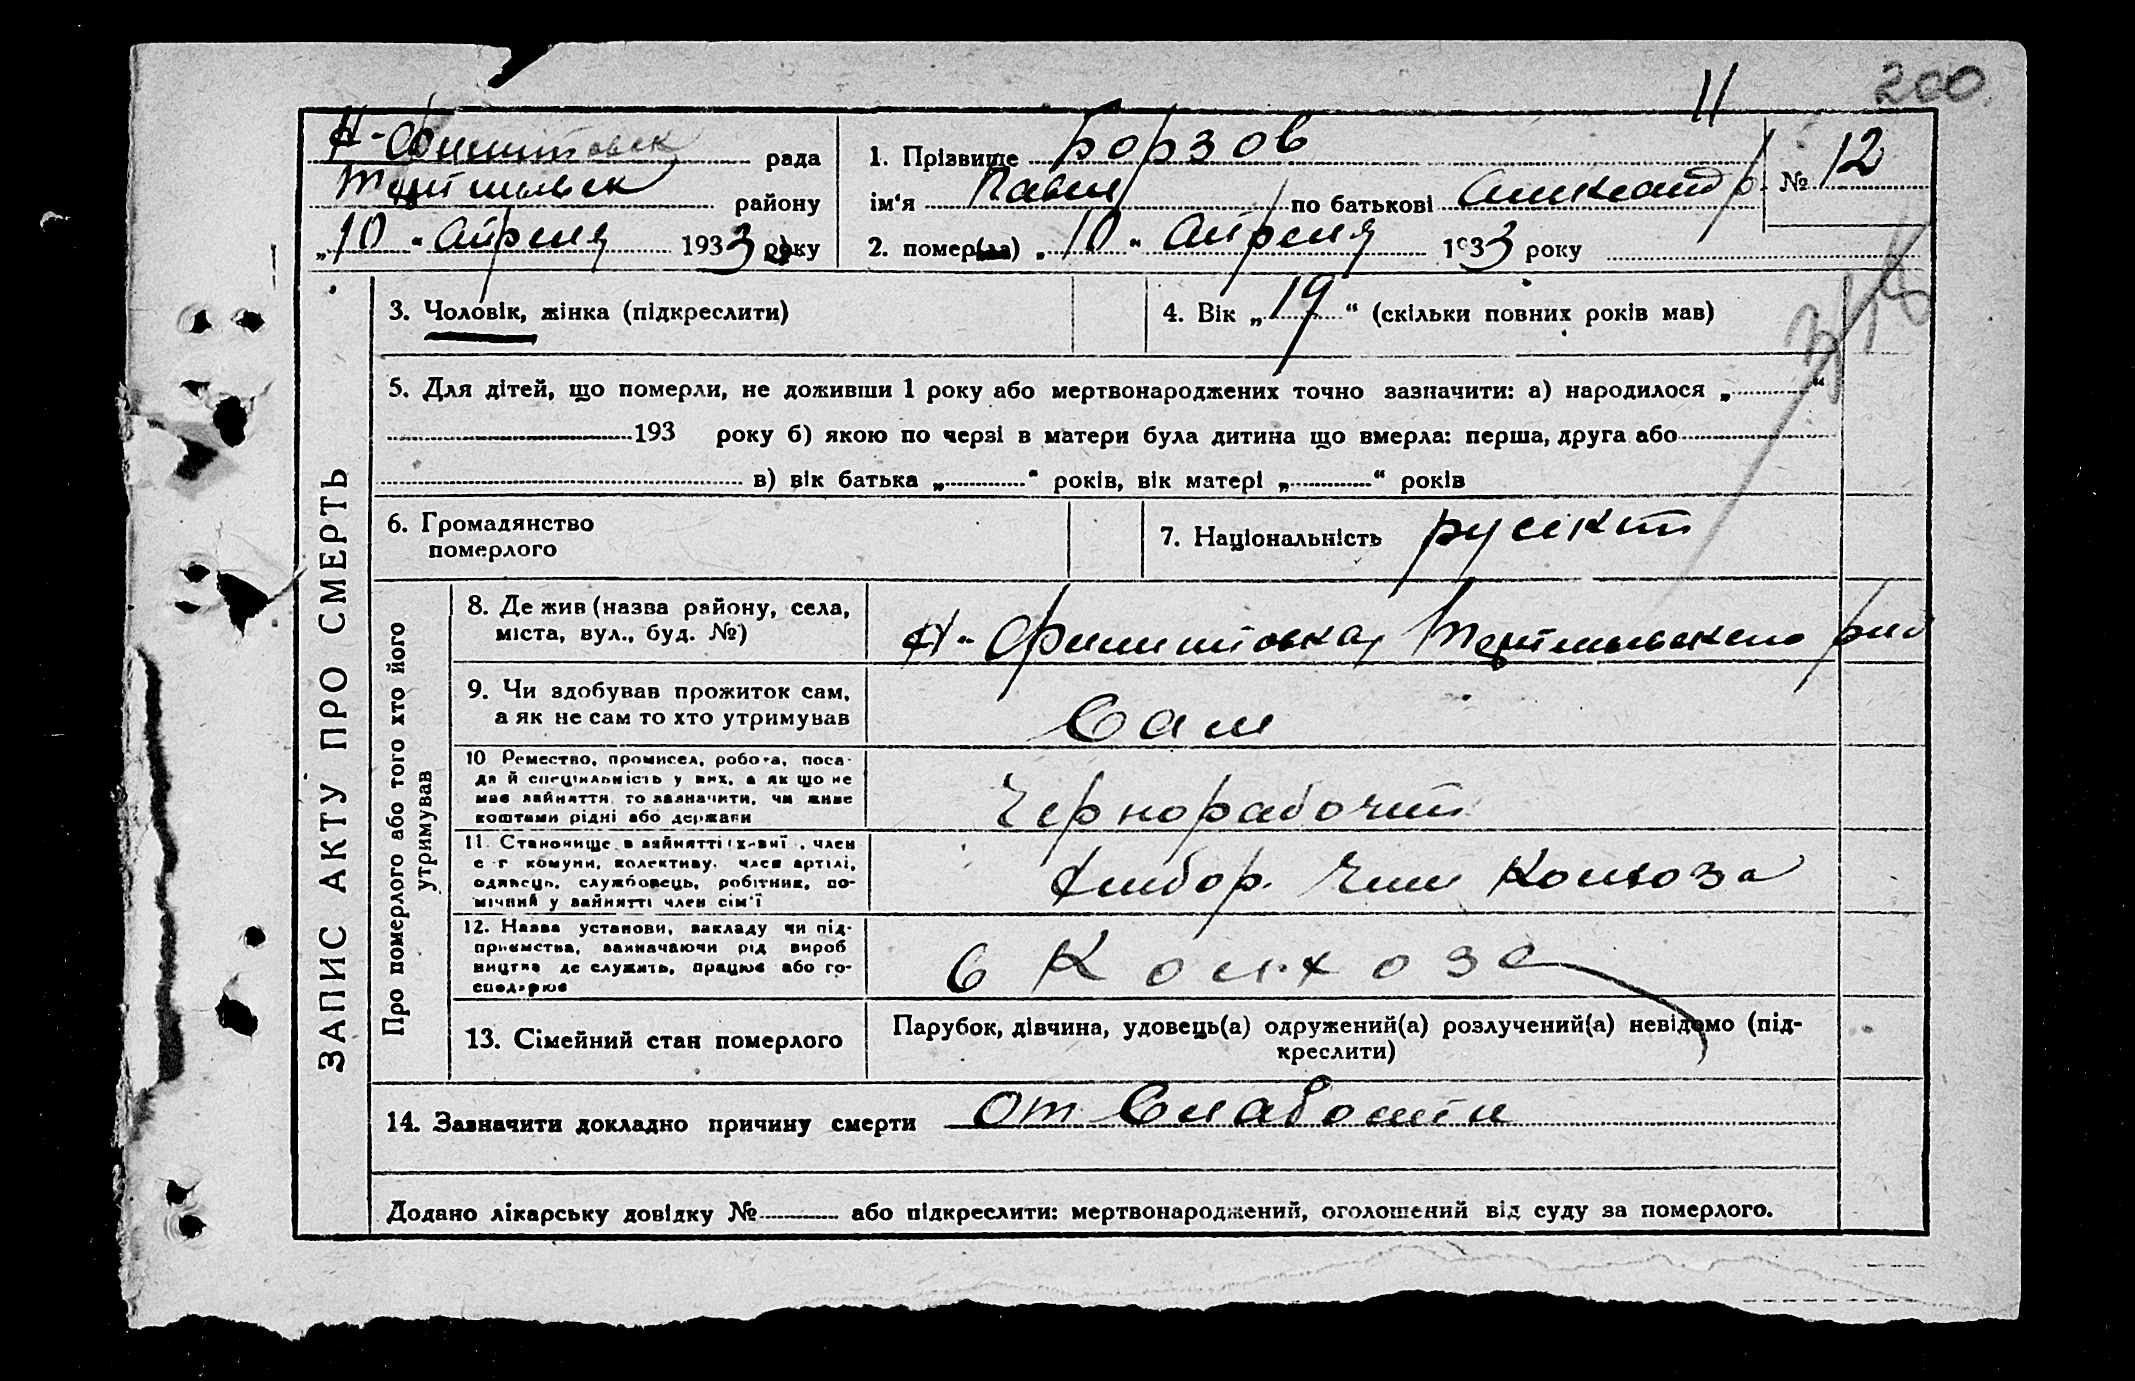 11
200
А-Филиповск рада
району
„10" Апреля 1933 року
1. Прізвище Борзов
ім'я Павел по батькові Александр.
№ 12
2. помер(ла) „10" Апреля 1933 року
ЗАПИС АКТУ ПРО СМЕРТЬ
3. Чоловік, жінка (підкреслити)
4. Вік „19" (скільки повних років мав)
5. Для дітей, що померли, не доживши 1 року або мертвонароджених точно зазначити: а) народилося „ "
193 року б) якою по черзі в матери була дитина що вмерла: перша, друга або
в) вік батька „ " років, вік матері „ " років
6. Громадянство
померлого
7. Національність русский
Про померлого або того хто його
утримував
8. Де жив (назва району, села,
міста, вул., буд. №)
9. Чи здобував прожиток сам,
а як не сам то хто утримував
Сам
10 Ремество, промисел, робота, поса-
да й спеціяльність у них, а як що не
мав зайняття, то зазначити, чи живе
коштами рідні або держави
Чернорабочий
11. Становище в зайнятті (хазяї, член
с-г комуни, колективу, член артілі,
одинець, службовець, робітник, по-
мічний у зайнятті член сім'ї
Член Колхоза
12. Назва установи, закладу чи під-
приємства, зазначаючи рід вироб
ництва де служить, працює або го-
сподарює
в Колхозе
13. Сімейний стан померлого
Парубок, дівчина, удовець(а) одружений(а) розлучений(а) невідомо (під-
креслити)
14. Зазначити докладно причину смерти От Слабости
Додано лікарську довідку № або підкреслити: мертвонароджений, оголошений від суду за померлого.